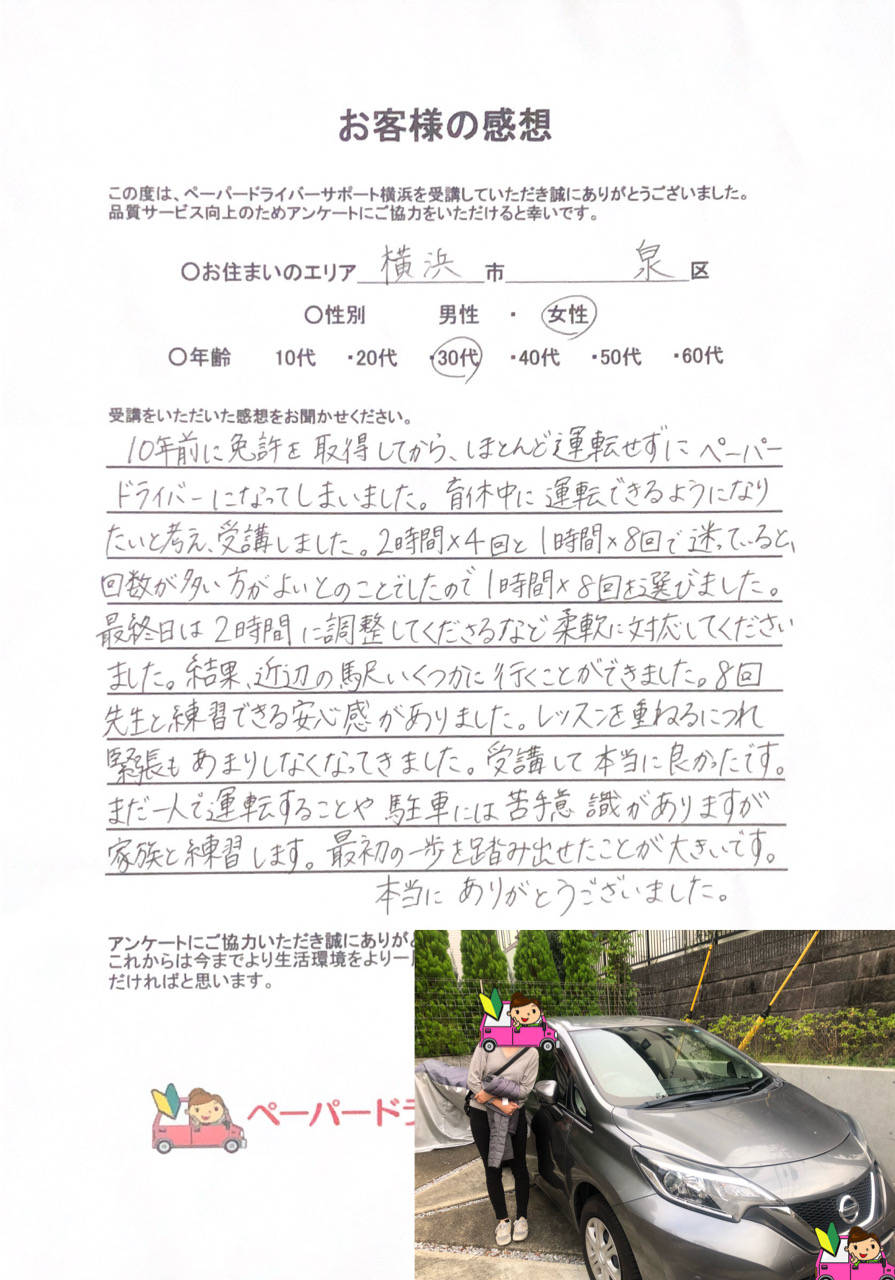 お客様の感想
この度は、ペーパードライバーサポート横浜を受講していただき誠にありがとうございました。
品質サービス向上のためアンケートにご協力をいただけると幸いです。
〇お住まいのエリア 横浜 市 泉 区
〇性別 男性 ・ 女性
〇年齢 10代 ・20代 ・30代 ・40代 ・50代 ・60代
受講をいただいた感想をお聞かせください。
10年前に免許を取得してから、ほとんど運転せずにペーパー
ドライバーになってしまいました。育休中に運転できるようになり
たいと考え、受講しました。2時間×4回と1時間×8回で迷っていると、
回数が多い方がよいとのことでしたので1時間×8回を選びました。
最終日は2時間に調整してくださるなど柔軟に対応してください
ました。結果、近辺の駅いくつかに行くことができました。8回
先生と練習できる安心感がありました。レッスンを重ねるにつれ
緊張もあまりしなくなってきました。受講して本当に良かったです。
まだ一人で運転することや駐車には苦手意識がありますが
家族と練習します。最初の一歩を踏み出せたことが大きいです。
本当にありがとうございました。
アンケートにご協力いただき誠にありがと
これからは今までより生活環境をより一層
だければと思います。
ペーパードラ